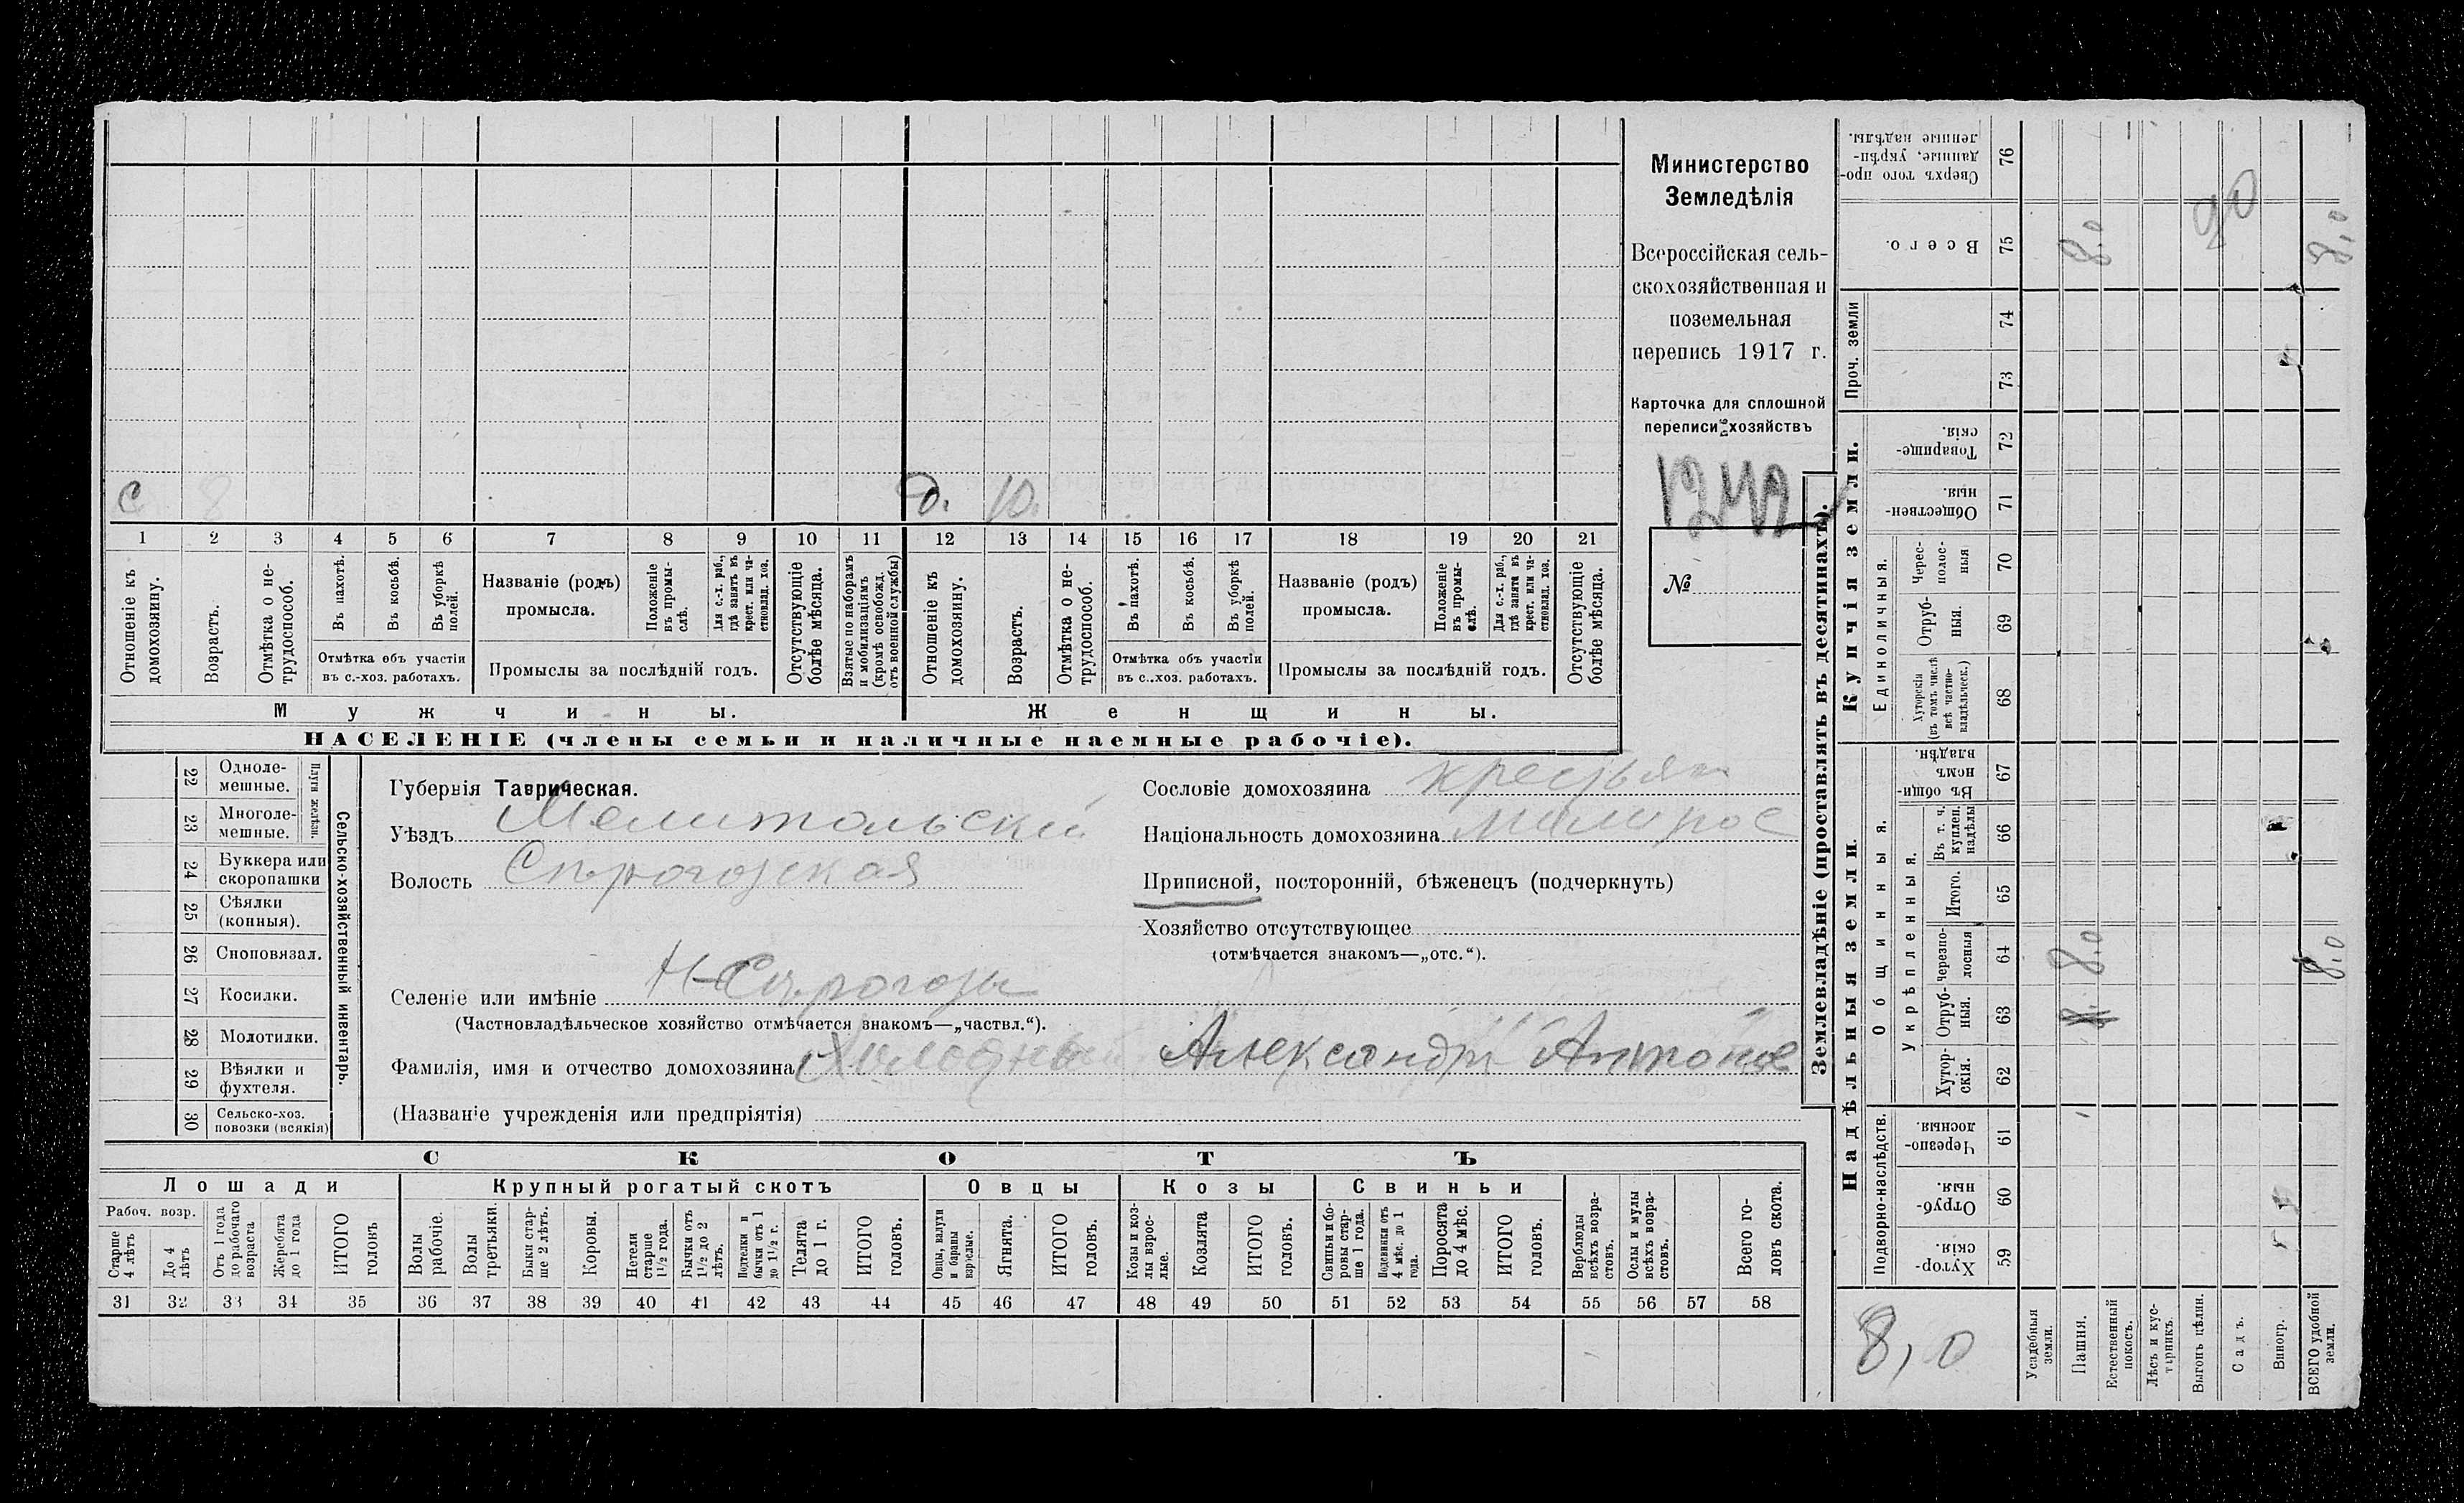 Министерство
Земледѣлія
Всероссійская сель-
скохозяйственная и
поземельная
перепись 1917 г.
Карточка для сплошной
переписи хозяйствъ
1242
№
С 8 д. 10.
1 2 3 4 5 6 7 8 9 10 11 12 13 14 15 16 17 18 19 20 21
Отношеніе къ домохозяину.
Возрастъ.
Отмѣтка о не-
трудоспособ.
Въ пахотѣ.
Въ косьбѣ.
Въ уборкѣ полей.
Отмѣтка объ участіи
въ с.-хоз. работахъ.
Названіе (родъ)
промысла.
Положеніе въ промы-
слѣ.
Для с.-х. раб., гдѣ занятъ въ крест. или ча-
стновлад. хоз.
Промыслы за послѣдній годъ.
Отсутствующіе болѣе мѣсяца.
Взятые по наборамъ и мобилизаціямъ (кромѣ освобожд. отъ военной службы)
Отношеніе къ домохозяину.
Возрастъ.
Отмѣтка о не-
трудоспособ.
Въ пахотѣ.
Въ косьбѣ.
Въ уборкѣ полей.
Отмѣтка объ участіи
въ с.-хоз. работахъ.
Названіе (родъ)
промысла.
Положеніе въ промы-
слѣ.
Для с.-х. раб., гдѣ занята въ крест. или ча-
стновлад. хоз.
Промыслы за послѣдній годъ.
Отсутствующіе болѣе мѣсяца.
Мужчины. Женщины.
НАСЕЛЕНІЕ (члены семьи и наличные наемные рабочіе).
Сельско-хозяйственный инвентарь.
Плуги желѣзн.
22 Одноле-
мешные.
23 Многоле-
мешные.
24 Буккера или
скоропашки
25 Сѣялки
(конныя).
26 Сноповязал.
27 Косилки.
28 Молотилки.
29 Вѣялки и
фухтеля.
30 Сельско-хоз.
повозки (всякія)
Губернія Таврическая.
Уѣздъ Мелитопольскій
Волость Сѣрогозская
Сословіе домохозяина крестьян
Національность домохозяина малорос
Приписной, посторонній, бѣженецъ (подчеркнуть)
Хозяйство отсутствующее
(отмѣчается знакомъ—„отс.“).
Селеніе или имѣніе Н-Сѣрогозы
(Частновладѣльческое хозяйство отмѣчается знакомъ—„частвл.“).
Фамилія, имя и отчество домохозяина Холодный Александръ Антонов
(Названіе учрежденія или предпріятія)
СКОТЪ
Лошади Крупный рогатый скотъ Овцы Козы Свиньи
Рабоч. возр.
Старше 4 лѣтъ
До 4 лѣтъ
Отъ 1 года до рабочаго возраста
Жеребята до 1 года
ИТОГО головъ
Волы рабочіе.
Волы третьяки.
Быки стар-
ше 2 лѣтъ.
Коровы.
Нетели старше 1½ года.
Бычки отъ 1½ до 2 лѣтъ.
Подтелки и бычки отъ 1 до 1½ г.
Телята до 1 г.
ИТОГО головъ.
Овцы, валухи и бараны взрослые.
Ягнята.
ИТОГО головъ.
Козы и коз-
лы взрос-
лые.
Козлята
ИТОГО головъ.
Свиньи и бо-
ровы стар-
ше 1 года.
Подсвинки отъ 4 мѣс. до 1 года.
Поросята до 4 мѣс.
ИТОГО головъ.
Верблюды всѣхъ возра-
стовъ.
Ослы и мулы всѣхъ возра-
стовъ.
Всего го-
ловъ скота.
31 32 33 34 35 36 37 38 39 40 41 42 43 44 45 46 47 48 49 50 51 52 53 54 55 56 57 58
Землевладѣніе (проставлять въ десятинахъ).
Надѣльныя земли.
Подворно-наслѣдств.
Хутор-
скія. 59
Отруб-
ныя. 60
Черезпо-
лосныя. 61
Общинныя.
Укрѣпленныя.
Хутор-
скія. 62
Отруб-
ныя. 63
Черезпо-
лосныя 64
Итого. 65
Въ т. ч. куплен. надѣлы 66
Въ общи-
номъ владѣн. 67
Купчія земли.
Единоличныя.
Хуторскія (въ томъ числѣ всѣ частно-
владѣльческ.) 68
Отруб-
ныя. 69
Черес-
полос-
ныя 70
Обществен-
ныя. 71
Товарище-
скія. 72
Проч. земли
73
74
Всего. 75
Сверхъ того про-
данные, укрѣп-
ленные надѣлы. 76
8,0
Усадебныя земли.
Пашня. 8. 8.0 8.0
Естественный покосъ.
Лѣсъ и кус-
тарникъ.
Выгонъ цѣлин.
Садъ.
Виногр.
ВСЕГО удобной земли. 8,0 8,0